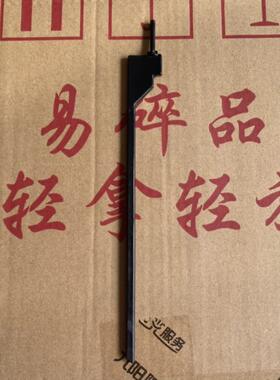 易碎品
轻拿轻
光服务